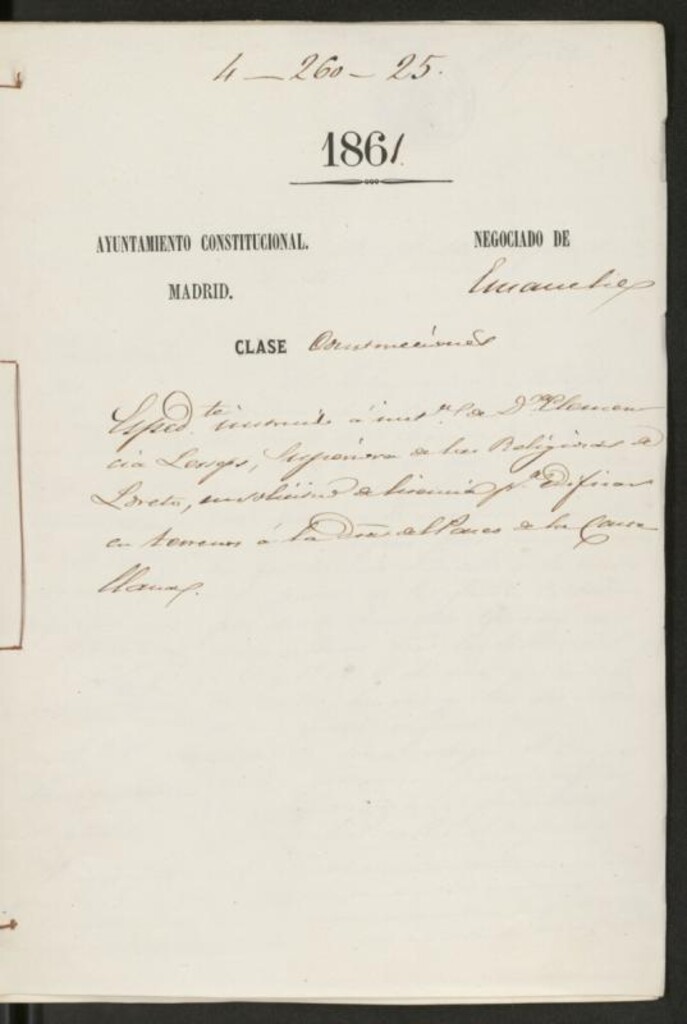 4 — 260 — 25.
1861
AYUNTAMIENTO CONSTITUCIONAL.
MADRID.
NEGOCIADO DE
Ensanche
CLASE Construcciones
Esped.te instruido á inst.a de D.a Clemen
cia Superiora de las Religiosas de
Loreto, en solicitud de licencia p.a edificar
en terrenos á la Dra. del Paseo de la Caste
llana.